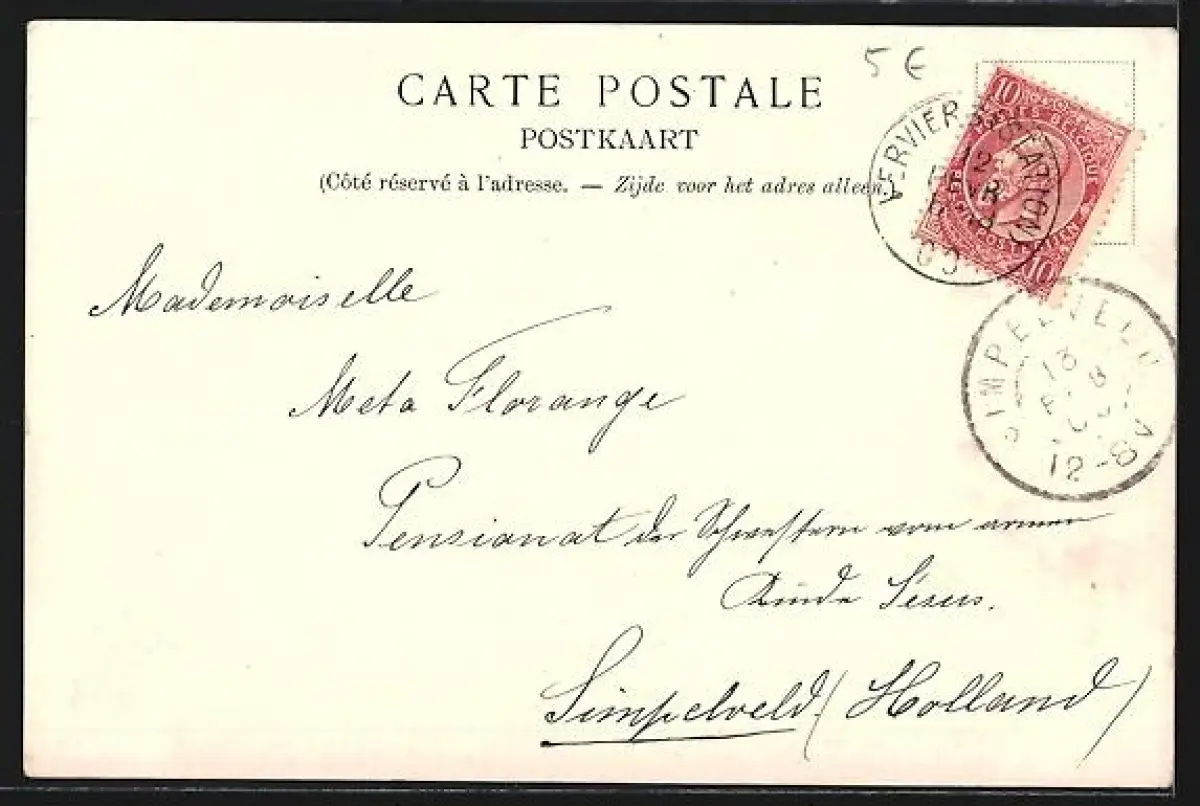 5 €
CARTE POSTALE
POSTKAART
(Côté réservé à l'adresse. — Zijde voor het adres alleen.)
10
POSTES BELGIQUE
10
VERVIERS STATION
12
FEVR
03
Mademoiselle
SIMPELVELD
13
12-8V
Meta Florange
Pensionat der Schwestern vom armen
Kinde Jésus.
Simpelveld (Holland)